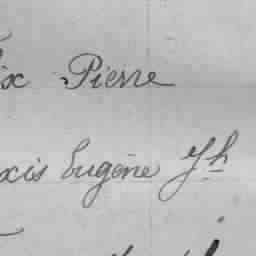 ix Pierre
xis Eugène Jh